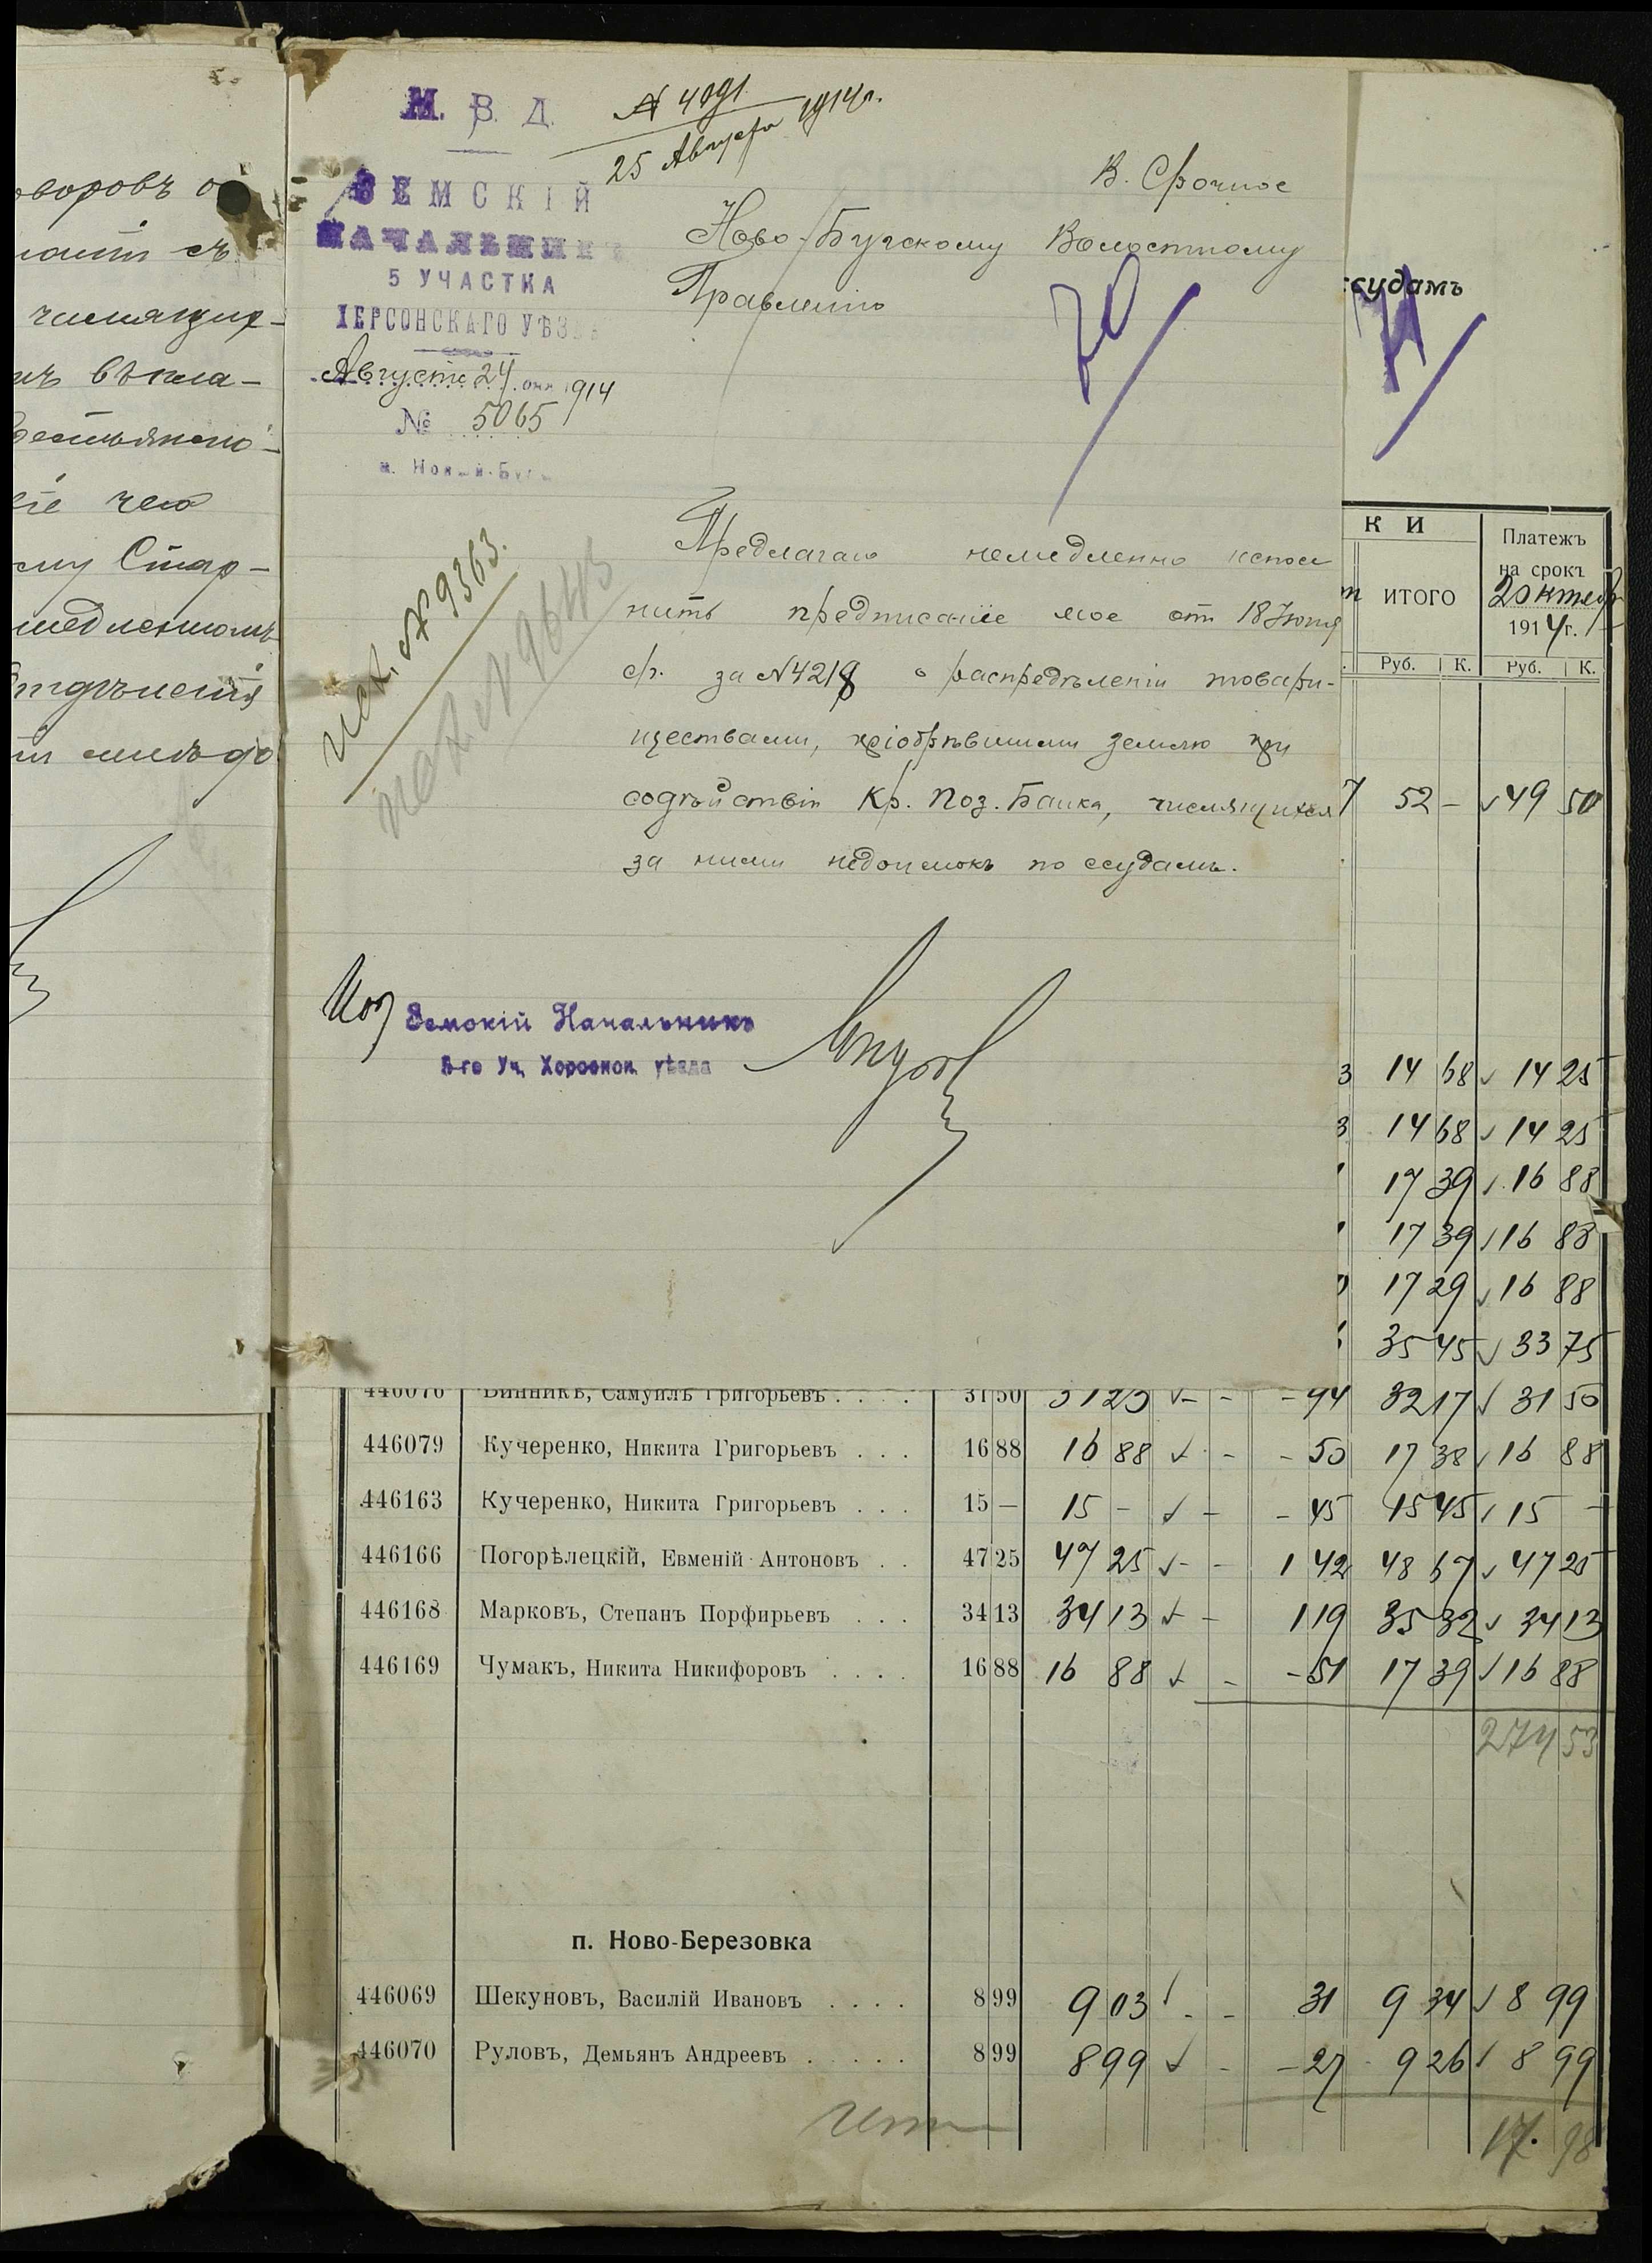 оворовъ о
числящих-
му Стар-
М. В. Д.
№ 4091
25 Августа 1914 г.
ЗЕМСКІЙ
НАЧАЛЬНИКЪ
5 УЧАСТКА
ХЕРСОНСКАГО УѢЗДА
Августа 24 дня 1914
№ 5065
п. Новый-Бугъ
В. Срочное
Ново-Бугскому Волостному
Правленію
70
Исп. № 9363.
№ 9643
Предлагаю немедленно испол
нить предписаніе мое от 18 Іюня
с/г. за №4218 о распредѣленіи товари-
ществами, пріобрѣвшими землю при
содѣйствіи Кр. Поз. Банка, числящихся
за ними недоимокъ по ссудамъ.
Земскій Начальникъ
5-го Уч. Херсонск. уѣзда
ссудамъ
71
К И
Платежъ
на срокъ
2 октябр
1914 г.
ИТОГО
Руб. К. Руб. К.
7 52 – 49 50
3 14 68 14 25
3 14 68 14 25
17 39 16 88
17 39 16 88
17 29 16 88
35 45 33 75
446076 Винникъ, Самуилъ Григорьевъ . . . . 31 50 31 23 – – – 94 32 17 31 50
446079 Кучеренко, Никита Григорьевъ . . . 16 88 16 88 – – 50 17 38 16 88
446163 Кучеренко, Никита Григорьевъ . . . 15 – 15 – – – 45 15 45 15 –
446166 Погорѣлецкій, Евменій Антоновъ . . 47 25 47 25 – – 1 42 48 67 47 25
446168 Марковъ, Степанъ Порфирьевъ . . . 34 13 34 13 – 1 19 35 32 34 13
446169 Чумакъ, Никита Никифоровъ . . . . 16 88 16 88 – – 51 17 39 16 88
274 53
п. Ново-Березовка
446069 Шекуновъ, Василій Ивановъ . . . . 8 99 9 03 – – 31 9 34 8 99
446070 Руловъ, Демьянъ Андреевъ . . . . . 8 99 8 99 – – 27 9 26 8 99
17. 98